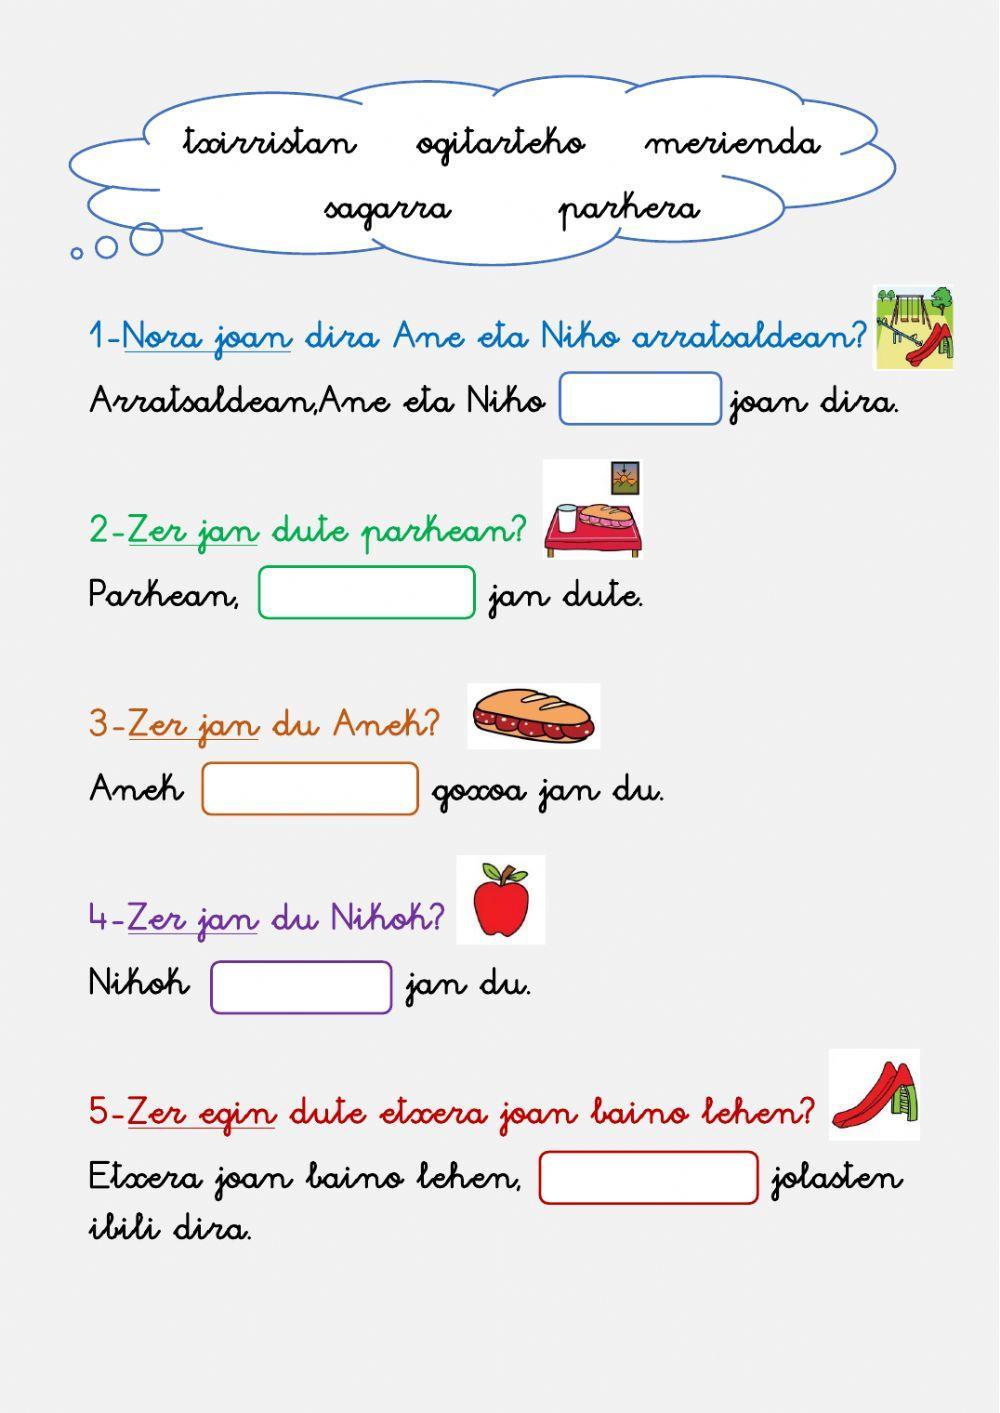 txirristan ogitarteko merienda
sagarra parkera
1-Nora joan dira Ane eta Niko arratsaldean?
Arratsaldean,Ane eta Niko joan dira.
2-Zer jan dute parkean?
Parkean, jan dute.
3-Zer jan du Anek?
Anek goxoa jan du.
4-Zer jan du Nikok?
Nikok jan du.
5-Zer egin dute etxera joan baino lehen?
Etxera joan baino lehen, jolasten
ibili dira.